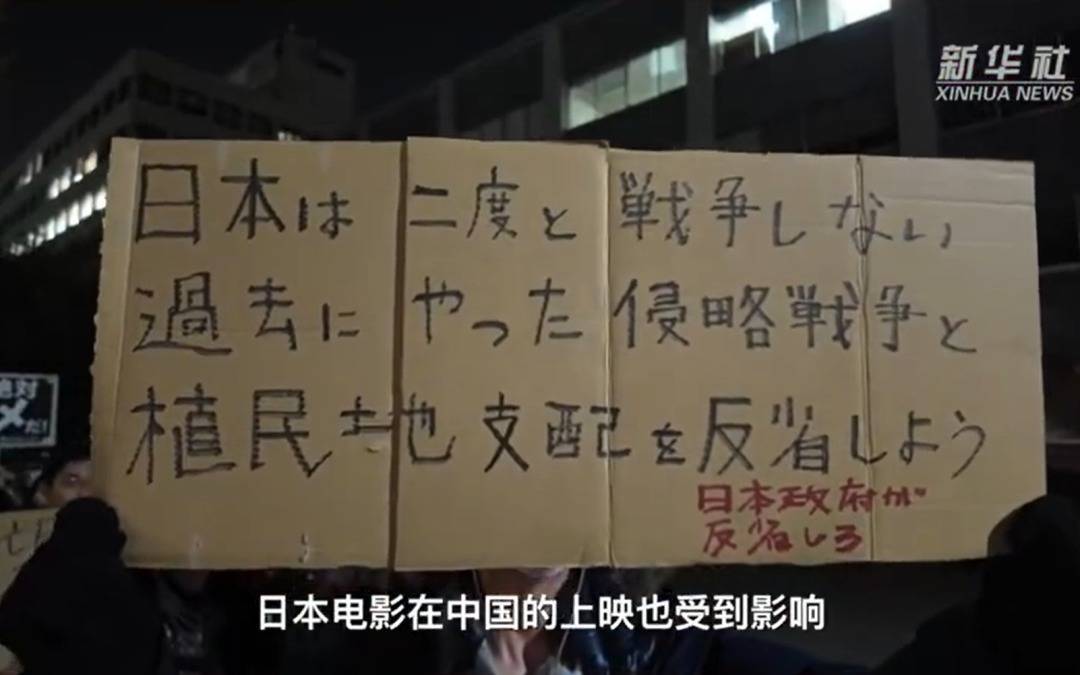 新华社
XINHUA NEWS
日本は二度と戦争しない
過去にやった侵略戦争と
植民地支配を反省しよう
日本政府が
反省しろ
絶対
ダメだ!
日本电影在中国的上映也受到影响